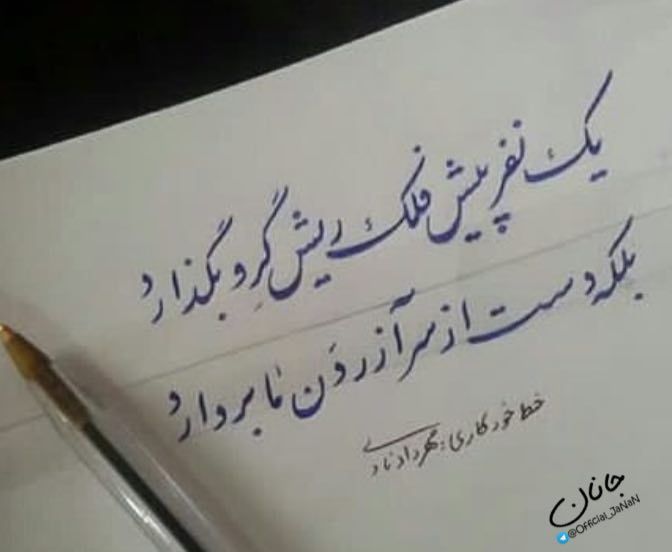 یک نفر پیش فلک ریش گرو بگذارد
بلکه دست از سر آزردن ما بردارد
خط خودکاری: مهرداد نادری
جانان
@Official_JaNaN